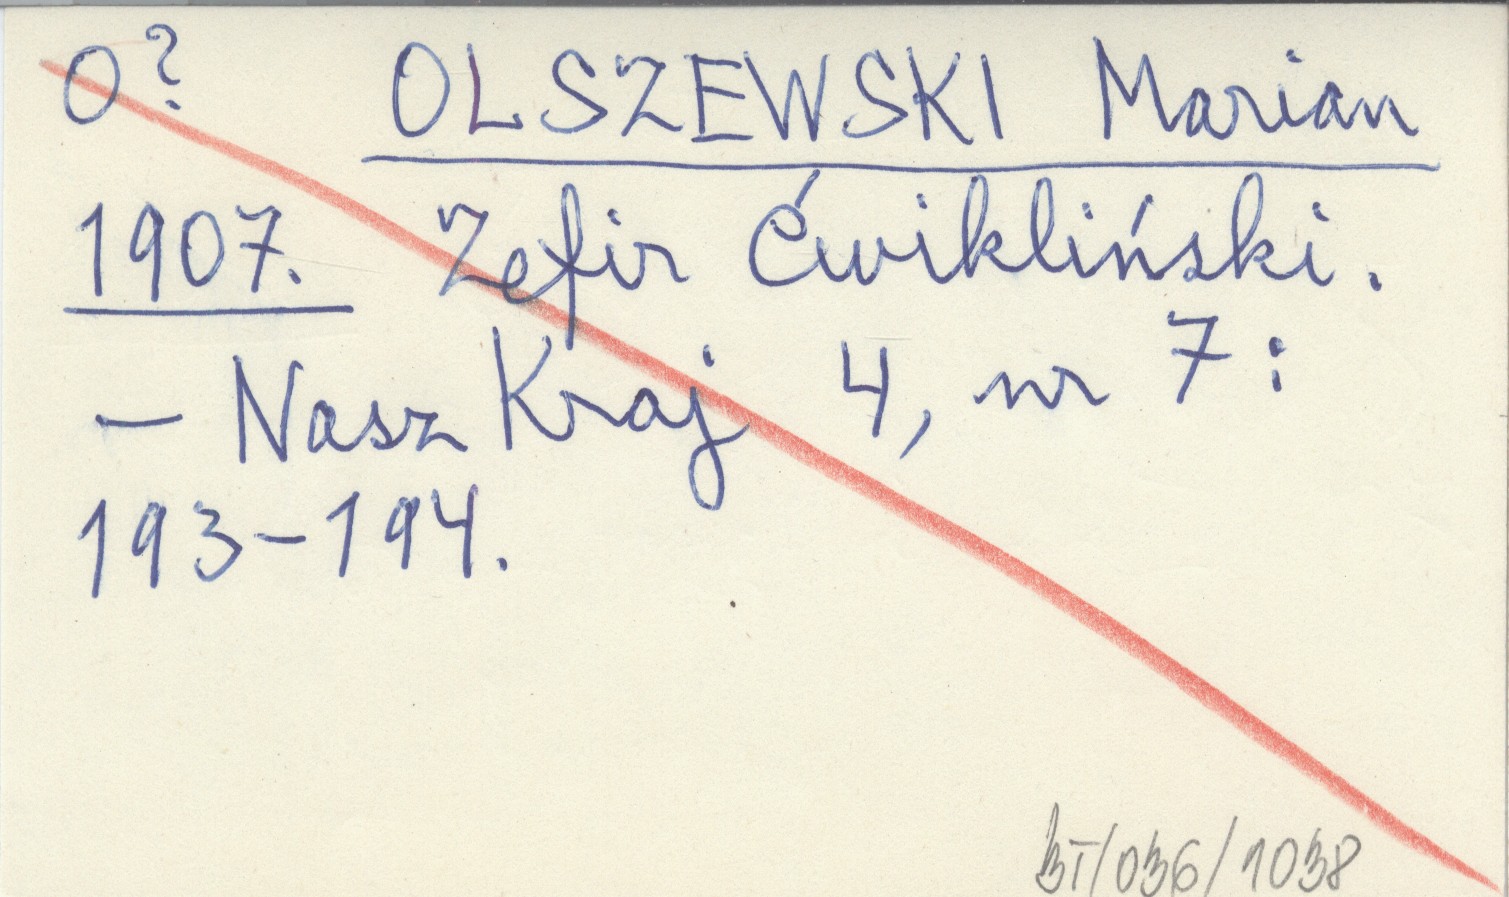 O? OLSZEWSKI Marian
1907. Zefir Ćwikliński.
– Nasz Kraj 4, nr 7:
193–194.
BT/036/1038